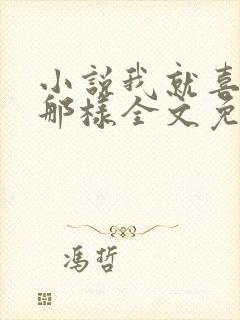 小説我就喜
那樣全文免
馮哲